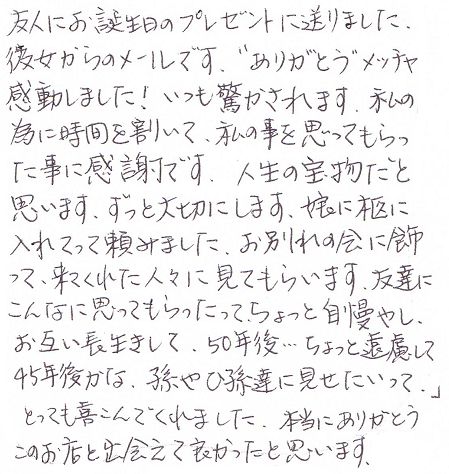 友人にお誕生日のプレゼントに送りました、
彼女からのメールです、"ありがとう"メッチャ
感動しました！いつも驚かされます、私の
為に時間を割いて、私の事を思ってもらっ
た事に感謝です、人生の宝物だと
思います、ずっと大切にします、娘に柩に
入れてって頼みました、お別れの会に飾
って、来てくれた人々に見てもらいます、友達に
こんなに思ってもらったって、ちょっと自慢やし、
お互い長生きして、50年後…ちょっと遠慮して
45年後かな、孫やひ孫達に見せたいって、」
とっても喜こんでくれました、本当にありがとう
このお店と出会えて良かったと思います、